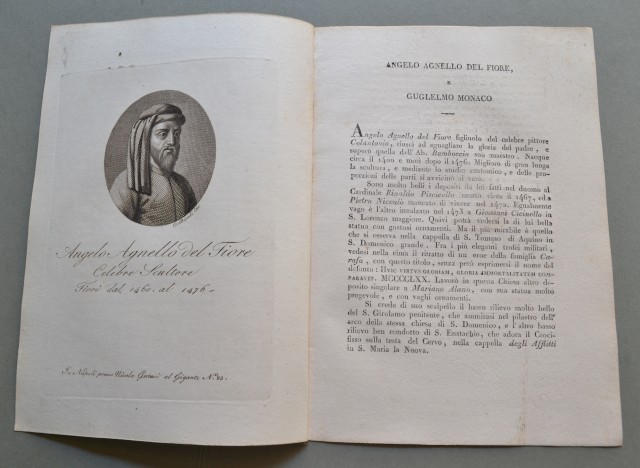 Angelo Agnello del Fiore
Celebre Scultore
Fiorì dal 1460. al 1476.
In Napoli presso Nicola Gervasi al Gigante N.º 23.
ANGELO AGNELLO DEL FIORE,
E
GUGLELMO MONACO
Angelo Agnello del Fiore figliuolo del celebre pittore
Colantonio, riuscì ad agguagliare la gloria del padre, e
superò quella dell'Ab. Bamboccio suo maestro. Nacque
circa il 1400 e morì dopo il 1476. Migliorò di gran lunga
la scultura, e mediante lo studio anatomico, e delle pro-
porzioni delle parti si avvicinò al vero.
Sono molto belli i depositi da lui fatti nel duomo al
Cardinale Rinaldo Piscicello morto circa il 1467, ed a
Pietro Niccolò mancato di vivere nel 1470. Egualmente
vago è l'altro innalzato nel 1473 a Giovanni Cicinello in
S. Lorenzo maggiore. Quivi potrà vedersi la di lui bella
statua con gustosi ornamenti. Ma il più mirabile è quello
che si osserva nella cappella di S. Tomaso di Aquino in
S. Domenico grande. Fra i più eleganti trofei militari,
vedesi nella cima il ritratto di un eroe della famiglia Ca-
rafa, con questo titolo, senza però esprimersi il nome del
defonto: Huic VIRTUS GLORIAM, GLORIA IMMORTALITATEM COM-
PARAVIT. MCCCCLXX. Lavorò in questa Chiesa altro depo-
sito singolare a Mariano Alano, con sua statua molto
pregevole, e con vaghi ornamenti.
Si crede di suo scalpello il basso rilievo molto bello
del S. Girolamo penitente, che ammirasi nel pilastro dell'
arco della stessa chiesa di S. Domenico, e l'altro basso
rilievo ben condotto di S. Eustachio, che adora il Croci-
fisso sulla testa del Cervo, nella cappella degli Afflitti
in S. Maria la Nuova.